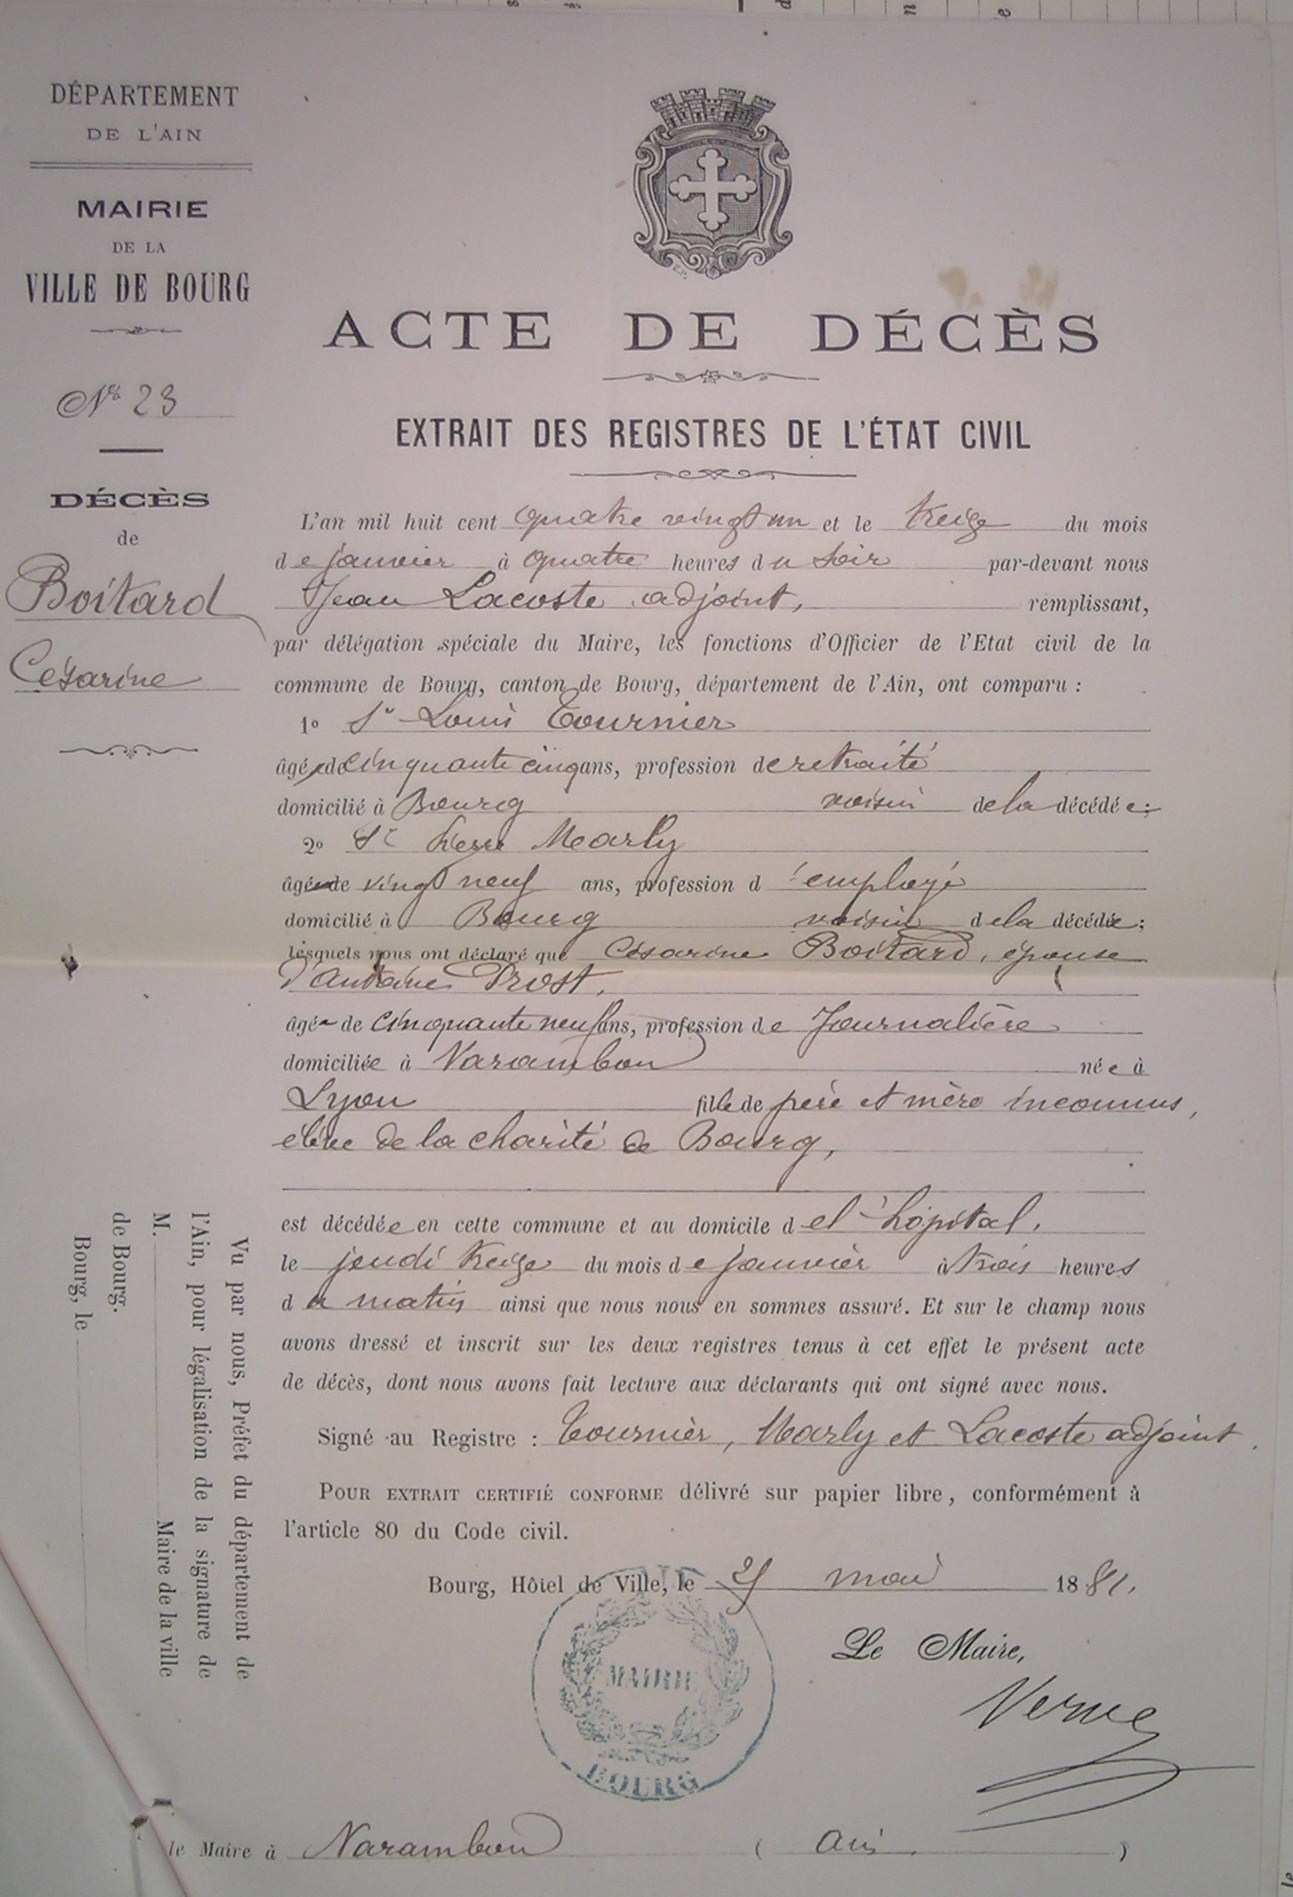 DÉPARTEMENT
DE L'AIN
MAIRIE
DE LA
VILLE DE BOURG
N° 23
DÉCÈS
de
Boitard
Césarine
ACTE DE DÉCÈS
EXTRAIT DES REGISTRES DE L'ÉTAT CIVIL
L'an mil huit cent quatre vingt un et le treize du mois
de janvier à quatre heures du soir par-devant nous
Jean Lacoste adjoint, remplissant,
par délégation spéciale du Maire, les fonctions d'Officier de l'Etat civil de la
commune de Bourg, canton de Bourg, département de l'Ain, ont comparu :
1° Sr Louis Tournier
âgé de cinquante cinq ans, profession de retraité
domicilié à Bourg voisin de la décédée ;
2° Sr Pierre Marly
âgé de vingt neuf ans, profession d'employé
domicilié à Bourg voisin de la décédée ;
lesquels nous ont déclaré que Césarine Boitard, épouse
d'Antoine Prost,
âgée de cinquante neuf ans, profession de Journalière
domiciliée à Varambon née à
Lyon fille de père et mère inconnus,
élève de la charité de Bourg,
est décédée en cette commune et au domicile de l'hôpital,
le jeudi treize du mois de janvier à trois heures
du matin ainsi que nous nous en sommes assuré. Et sur le champ nous
avons dressé et inscrit sur les deux registres tenus à cet effet le présent acte
de décès, dont nous avons fait lecture aux déclarants qui ont signé avec nous.
Signé au Registre : Tournier, Marly et Lacoste adjoint.
POUR EXTRAIT CERTIFIÉ CONFORME délivré sur papier libre, conformément à
l'article 80 du Code civil.
Bourg, Hôtel de Ville, le 25 mai 1881.
Le Maire,
Verne
MAIRIE
BOURG
Vu par nous, Préfet du département de
l'Ain, pour légalisation de la signature de
M. Maire de la ville
de Bourg.
Bourg, le
le Maire à Varambon ( Ain )